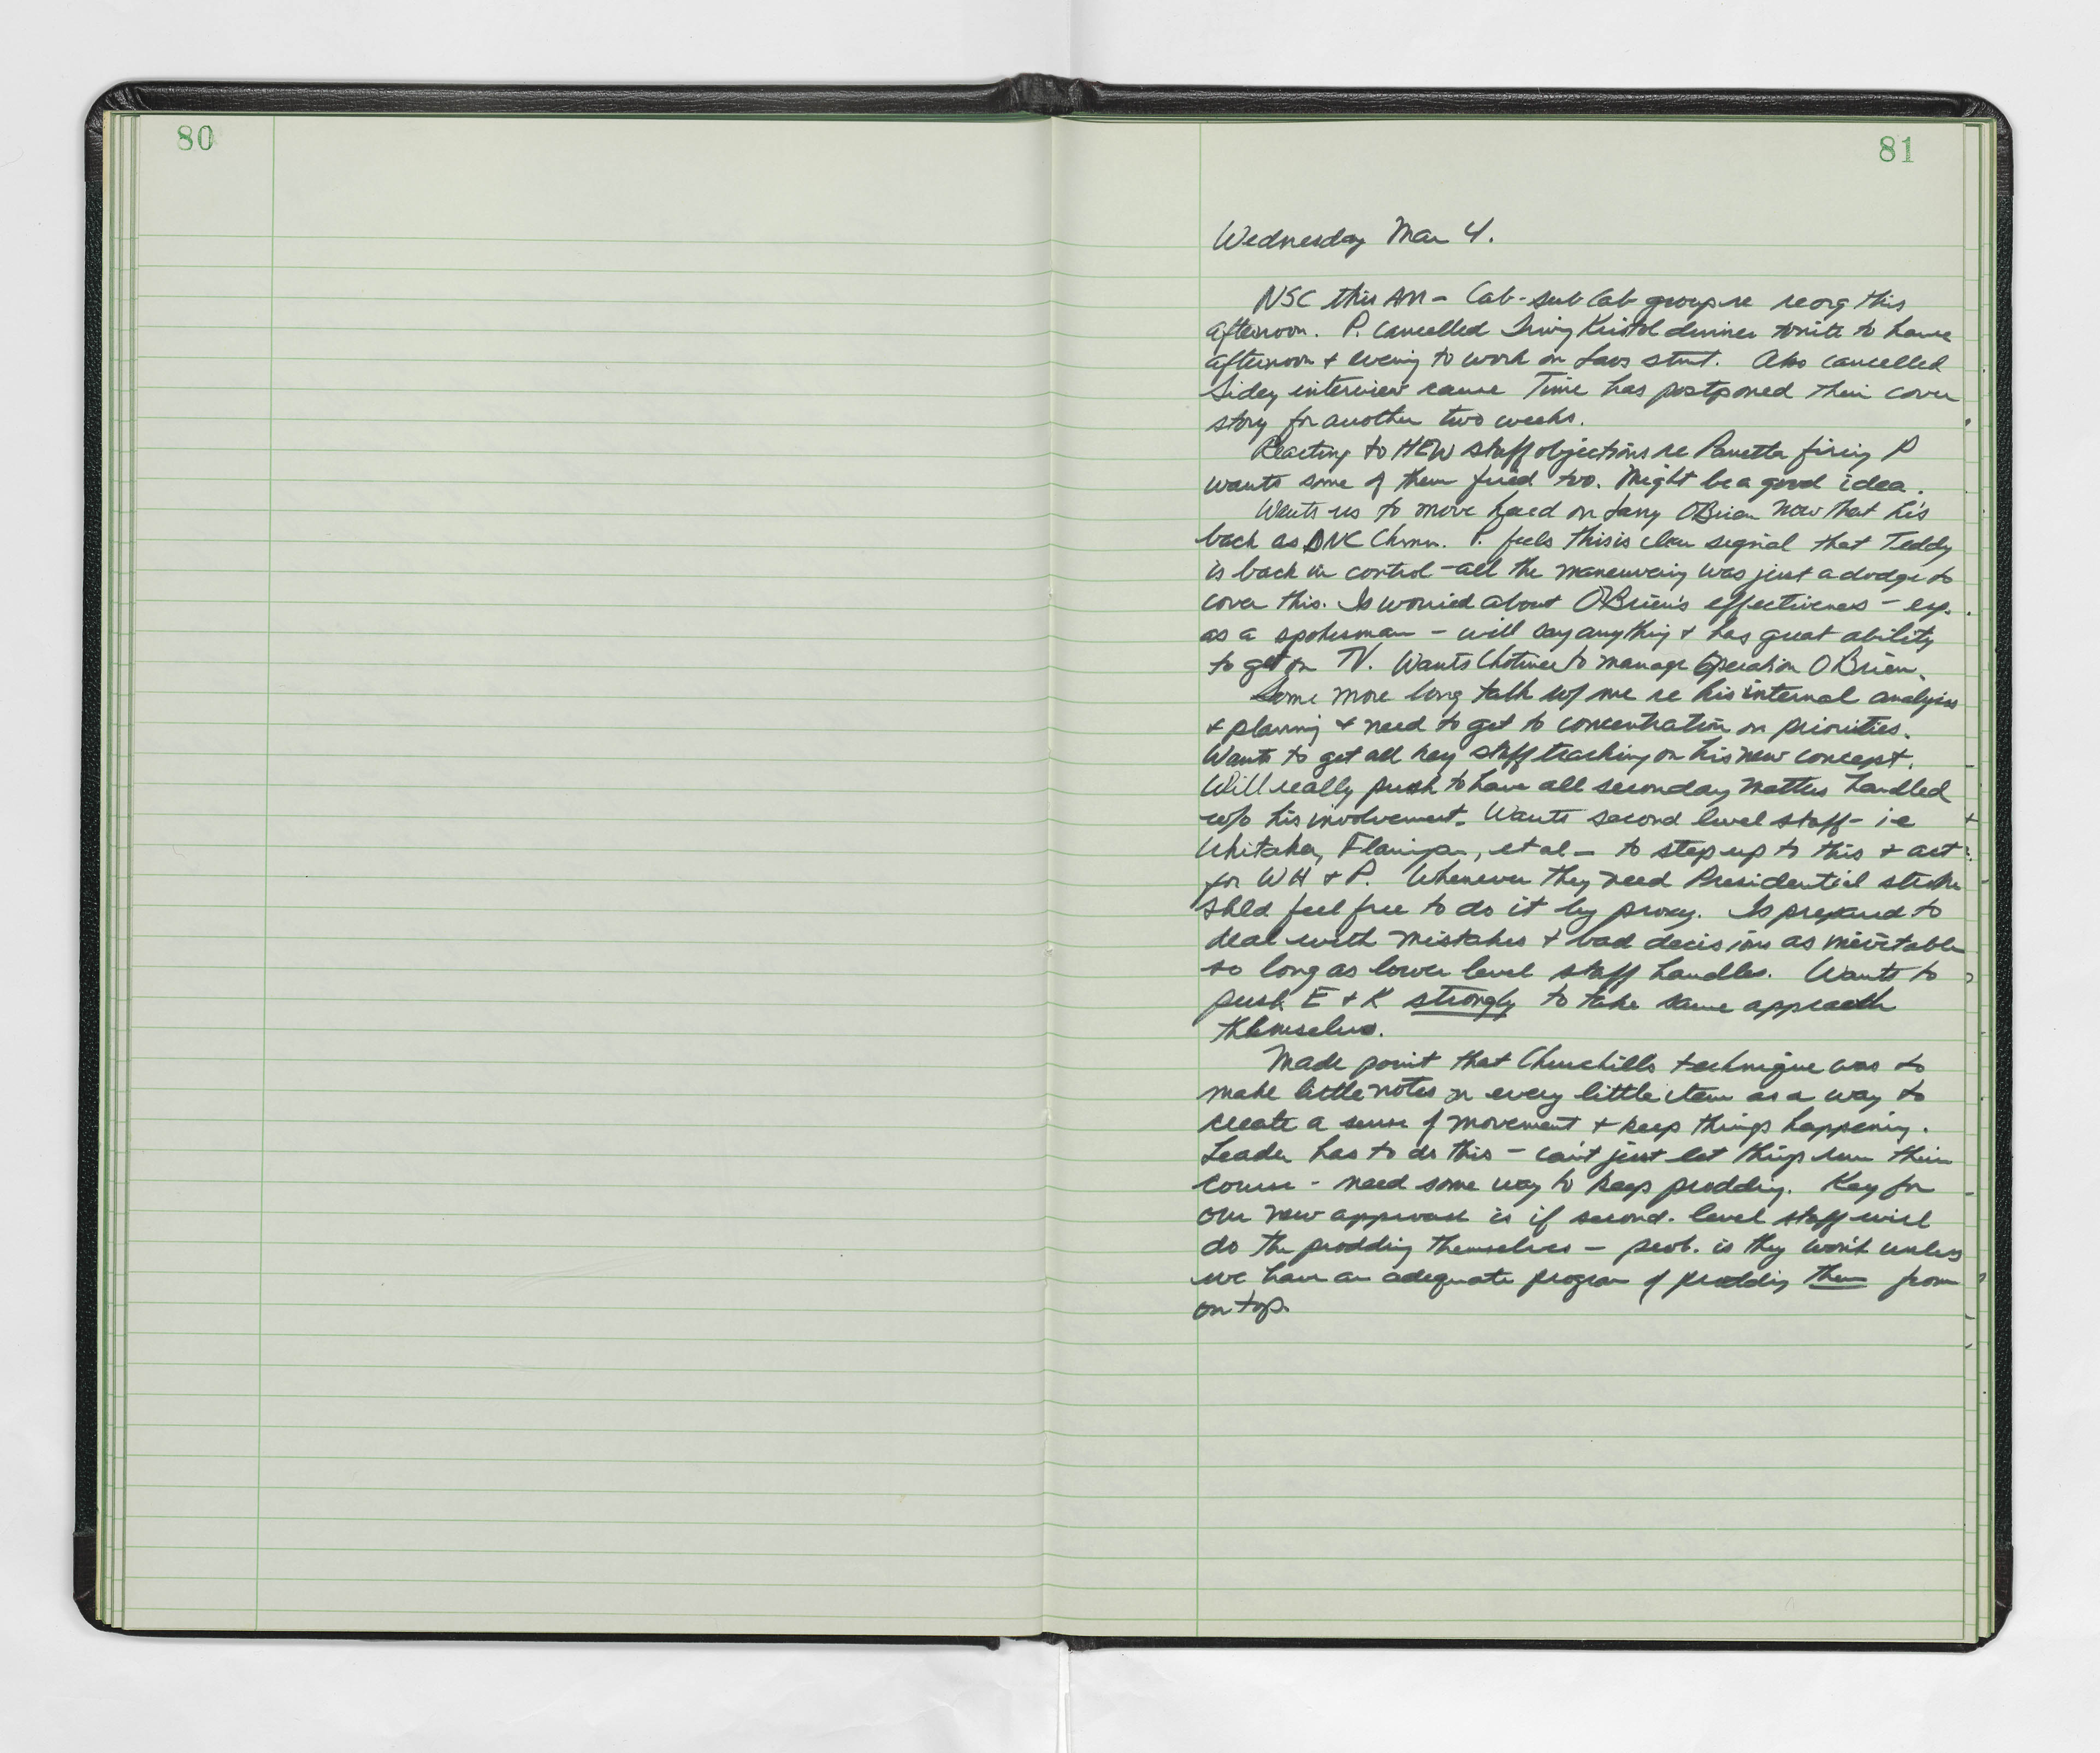 80
81
Wednesday Mar 4.
NSC this AM - Cab-sub Cab group re reorg this
afternoon. P. cancelled Irving Kristol dinner tonite to have
afternoon & evening to work on Laos stmt. Also cancelled
Sidey interview cause Time has postponed their cover
story for another two weeks.
Reacting to HEW staff objections re Panetta firing P
wants some of them fired too. Might be a good idea.
Wants us to move hard on Larry OBrien now that he's
back as DNC Chmn. P. feels this is clear signal that Teddy
is back in control - all the maneuvering was just a dodge to
cover this. Is worried about O'Brien's effectiveness - esp.
as a spokesman - will say anything & has great ability
to get on TV. Wants Chotiner to manage Operation OBrien.
Some more long talk w/ me re his internal analysis
& planning & need to get to concentration on priorities.
Wants to get all key staff tracking on his new concept.
Will really push to have all seconday matters handled
w/o his involvement. Wants second level staff - ie
Whitaker, Flanigan, et al - to step up to this & act
for WH & P. Whenever they need Presidential stroke
shld feel free to do it by proxy. Is prepared to
deal with mistakes & bad decisions as inevitable
so long as lower level staff handles. Wants to
push E & K strongly to take same approach
themselves.
Made point that Churchills technique was to
make little notes on every little item as a way to
create a sense of movement & keep things happening.
Leader has to do this - can't just let things run their
course - need some way to keep prodding. Key for
our new approach is if second-level staff will
do the prodding themselves - prob. is they won't unless
we have an adequate program of prodding them from
on top.